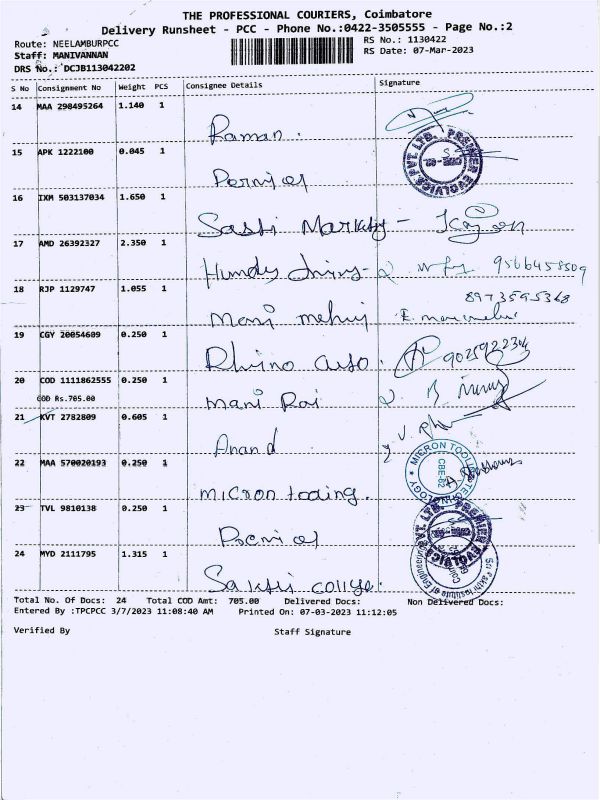 THE PROFESSIONAL COURIERS, Coimbatore
Delivery Runsheet - PCC - Phone No.:0422-3505555 - Page No.:2
Route: NEELAMBURPCC
RS No.: 1130422
Staff: MANIVANNAN
RS Date: 07-Mar-2023
DRS No.: DCJB113042202
S No Consignment No Weight PCS Consignee Details Signature
14 MAA 298495264 1.140 1
Raman.
15 APK 1222100 0.045 1
PREMIER EVOLVICS PVT. LTD.
16 IXM 503137034 1.650 1
Sasti
17 AMD 26392327 2.350 1
9566458509
18 RJP 1129747 1.055 1
8973595368
Mani
19 CGY 20054609 0.250 1
Rhino Auto.
9025922304
20 COD 1111862555 0.250 1
COD Rs.705.00
Mani Raj
21 KVT 2782809 0.605 1
Anand
22 MAA 570020193 0.250 1
MICRON TOOLING TECHNOLOGY
CBE-62
micron tooling.
23 TVL 9810138 0.250 1
PREMIER EVOLVICS PVT. LTD.
24 MYD 2111795 1.315 1
Sakthi college.
Total No. Of Docs: 24 Total COD Amt: 705.00 Delivered Docs: Non Delivered Docs:
Entered By :TPCPCC 3/7/2023 11:08:40 AM Printed On: 07-03-2023 11:12:05
Verified By Staff Signature